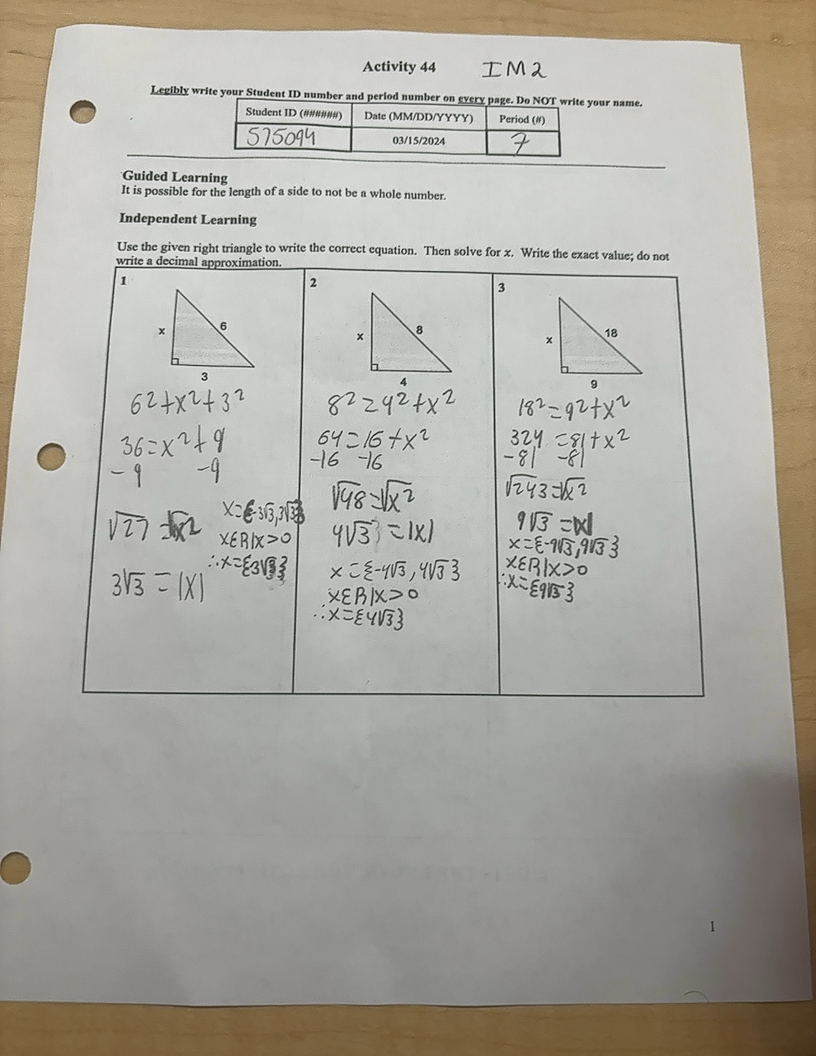 Activity 44 IM2
Legibly write your Student ID number and period number on every page. Do NOT write your name.
Student ID (######) Date (MM/DD/YYYY) Period (#)
575094 03/15/2024 7
Guided Learning
It is possible for the length of a side to not be a whole number.
Independent Learning
Use the given right triangle to write the correct equation. Then solve for x. Write the exact value; do not
write a decimal approximation.
1
x 6
3
6²+x²+3²
36=x²+9
-9 -9
√27=√x²
3√3=|x|
x={-3√3,3√3}
xER|x>0
∴x={3√3}
2
x 8
4
8²=4²+x²
64=16+x²
-16 -16
√48=√x²
4√3=|x|
x={-4√3,4√3}
xER|x>0
∴x={4√3}
3
x 18
9
18²=9²+x²
324=81+x²
-81 -81
√243=√x²
9√3=|x|
x={-9√3,9√3}
xER|x>0
∴x={9√3}
1